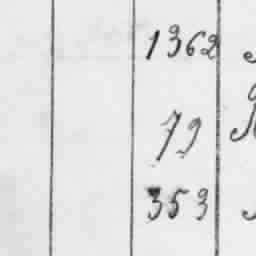 1362
79
353